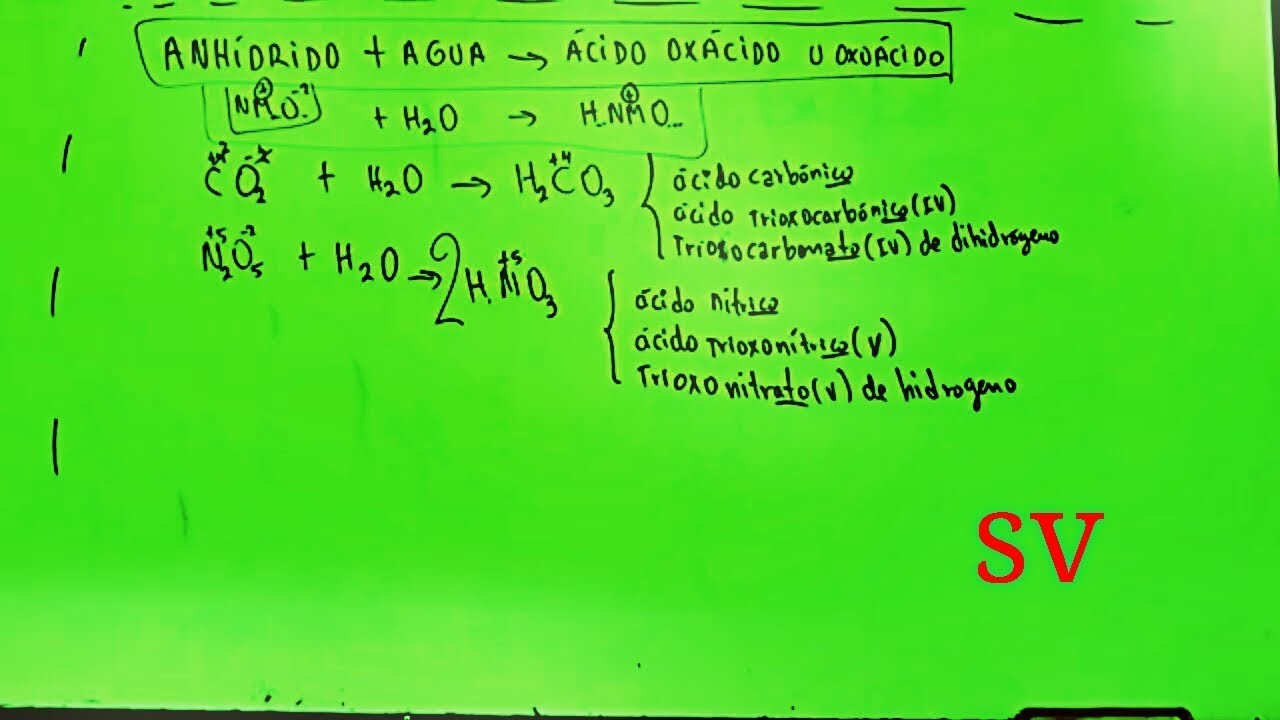 ANHÍDRIDO + AGUA → ÁCIDO OXÁCIDO U OXOÁCIDO
NMO + H₂O → H..NMO...
CO₂ + H₂O → H₂CO₃
ácido carbónico
ácido Trioxocarbónico(IV)
Trioxocarbonato(IV) de dihidrógeno
N₂O₅ + H₂O → 2H.NO₃
ácido nítrico
ácido trioxonítrico(V)
Trioxonitrato(V) de hidrogeno
SV